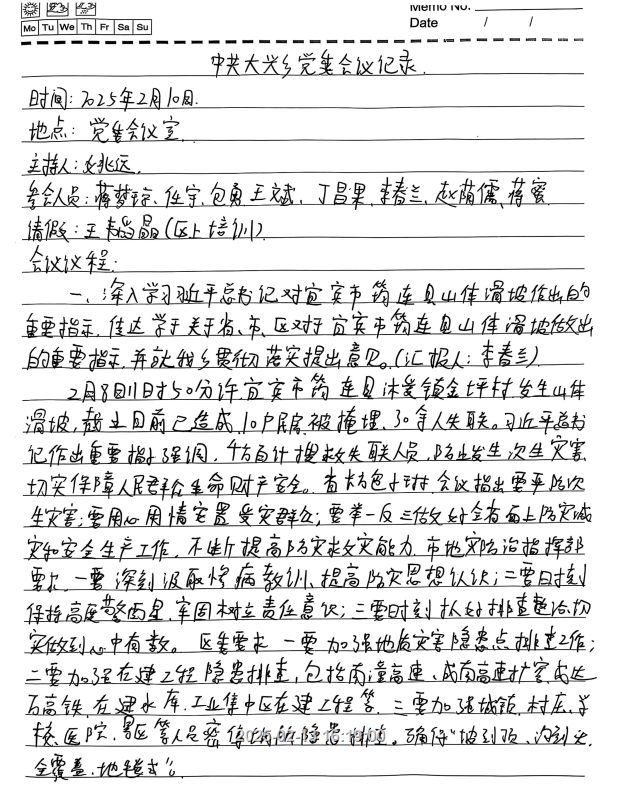 Mo Tu We Th Fr Sa Su
Memo No.
Date / /
中共大兴乡党委会议记录.
时间: 2025年2月10日.
地点: 党委会议室.
主持人: 兆远.
参会人员: 蒋梦琼、任宇、包勇、王斌、丁昌果、李春兰、赵荫儒、蒋蜜
请假: 王晶(区上培训)
会议议程:
一、深入学习近平总书记对宜宾市筠连县山体滑坡作出的
重要指示, 传达学习关于省、市、区对于宜宾市筠连县山体滑坡做出
的重要指示, 并就我乡贯彻落实提出意见。(汇报人: 李春兰)
2月8日11时50分许, 宜宾市筠连县沐爱镇金坪村发生山体
滑坡, 截止目前已造成10户民房被掩埋, 30余人失联。习近平总书
记作出重要指示强调, 千方百计搜救失联人员, 防止发生次生灾害,
切实保障人民群众生命财产安全。省 会议指出要严防次
生灾害; 要用心用情安置受灾群众; 要举一反三做好全省面上防灾减
灾和安全生产工作, 不断提高防灾救灾能力. 市地灾防治指挥部
要求, 一要深刻汲取惨痛教训、提高防灾思想认识; 二要时刻
保持高度警觉, 牢固树立责任意识; 三要时刻抓好排查整治, 切
实做到心中有数。区委要求, 一要加强地质灾害隐患点排查工作;
二要加强在建工程隐患排查, 包括南潼高速、成南高速扩容、成达
万高铁、在建水库、工业集中区在建工程等. 三要加强城镇、村庄、学
校、医院、景区等人员密集场所隐患排查。确保"坡到顶、沟到头、
全覆盖、地毯式"。
2025.02.13 16:19:00